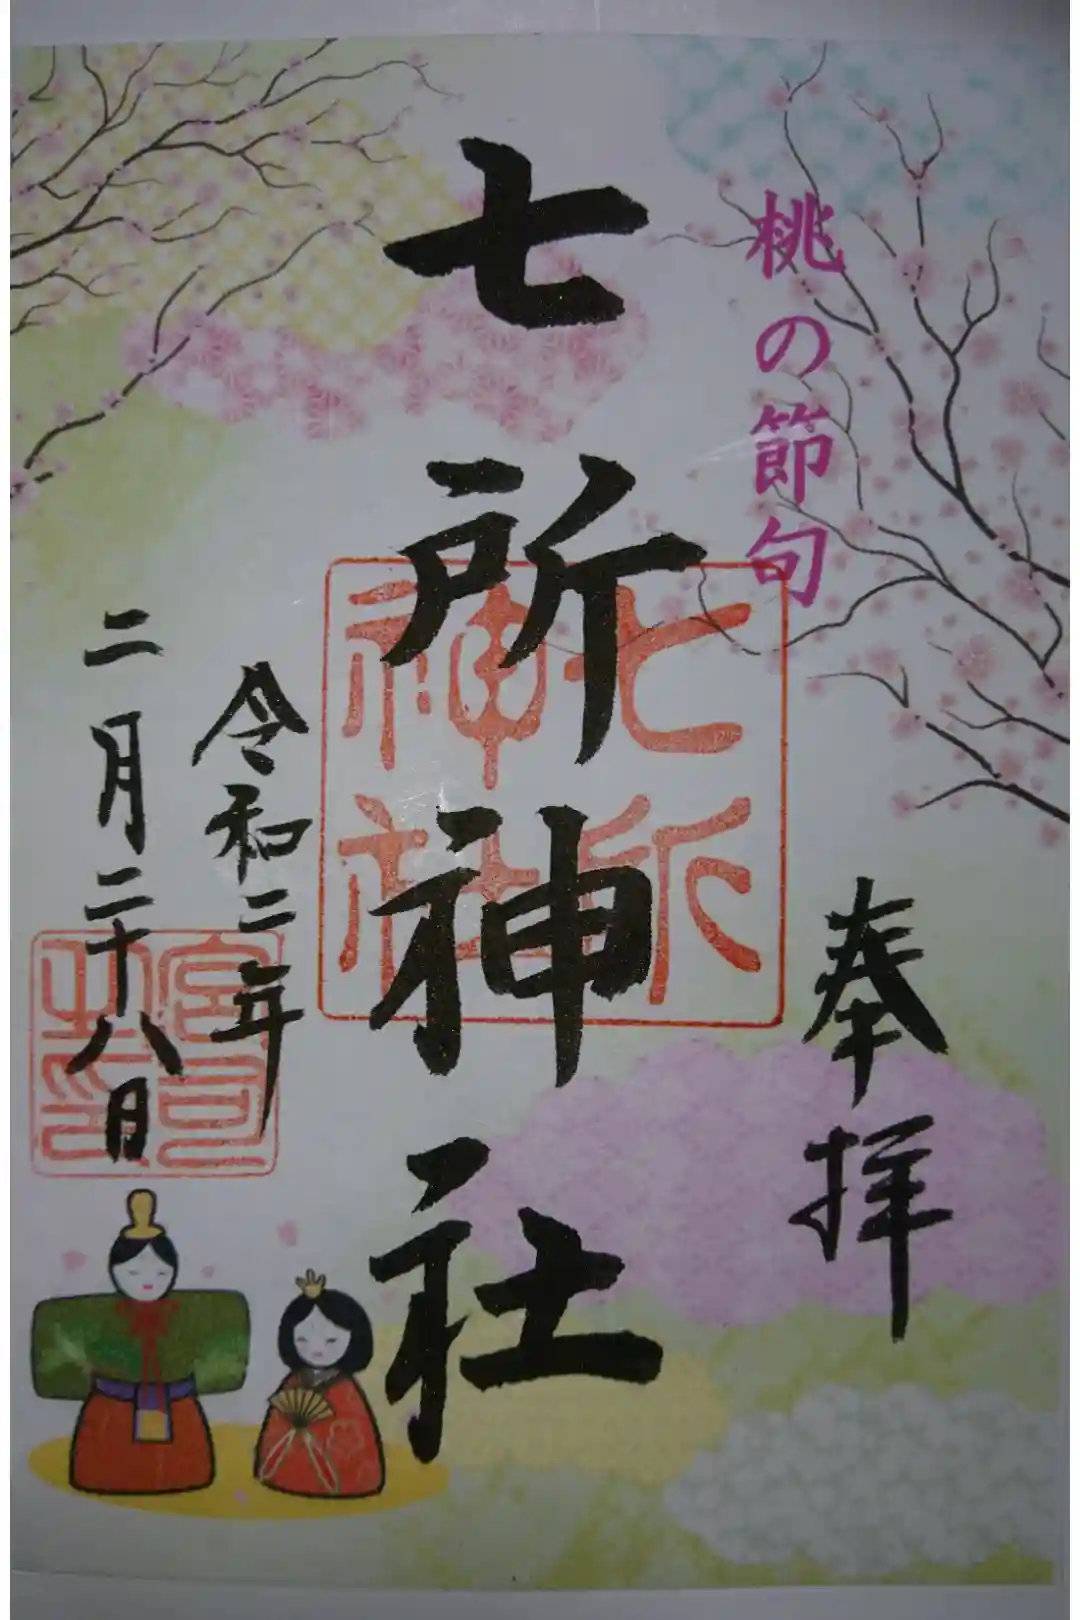 桃の節句
奉拝
七所神社
七所
神社
令和二年
二月二十八日
宮司
之印